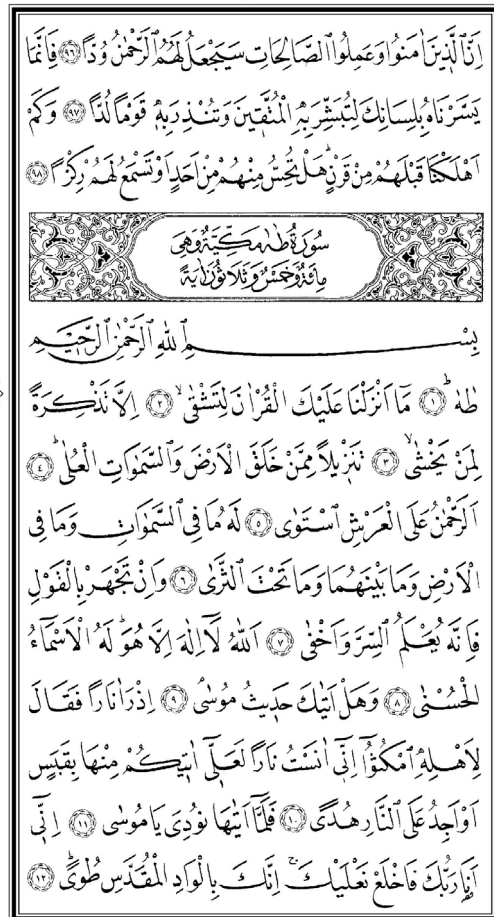 اِنَّ الَّذ۪ينَ اٰمَنُوا وَعَمِلُوا الصَّالِحَاتِ سَيَجْعَلُ لَهُمُ الرَّحْمٰنُ وُدًّا ﴿٩٦﴾ فَاِنَّمَا
يَسَّرْنَاهُ بِلِسَانِكَ لِتُبَشِّرَ بِهِ الْمُتَّق۪ينَ وَتُنْذِرَ بِه۪ قَوْمًا لُدًّا ﴿٩٧﴾ وَكَمْ
اَهْلَكْنَا قَبْلَهُمْ مِنْ قَرْنٍۜ هَلْ تُحِسُّ مِنْهُمْ مِنْ اَحَدٍ اَوْ تَسْمَعُ لَهُمْ رِكْزًا ﴿٩٨﴾
سُورَةُ طٰهٰ مَكِّيَّةٌ وَهِىَ
مِائَةٌ وَخَمْسٌ وَثَلَاثُونَ اٰيَةً
بِسْمِ اللّٰهِ الرَّحْمٰنِ الرَّح۪يمِ
طٰهٰۜ ﴿١﴾ مَٓا اَنْزَلْنَا عَلَيْكَ الْقُرْاٰنَ لِتَشْقٰىۙ ﴿٢﴾ اِلَّا تَذْكِرَةً
لِمَنْ يَخْشٰىۙ ﴿٣﴾ تَنْز۪يلًا مِمَّنْ خَلَقَ الْاَرْضَ وَالسَّمٰوَاتِ الْعُلٰىۜ ﴿٤﴾
اَلرَّحْمٰنُ عَلَى الْعَرْشِ اسْتَوٰى ﴿٥﴾ لَهُ مَا فِى السَّمٰوَاتِ وَمَا فِى
الْاَرْضِ وَمَا بَيْنَهُمَا وَمَا تَحْتَ الثَّرٰى ﴿٦﴾ وَاِنْ تَجْهَرْ بِالْقَوْلِ
فَاِنَّهُ يَعْلَمُ السِّرَّ وَاَخْفٰى ﴿٧﴾ اَللّٰهُ لَٓا اِلٰهَ اِلَّا هُوَۜ لَهُ الْاَسْمَٓاءُ
الْحُسْنٰى ﴿٨﴾ وَهَلْ اَتٰيكَ حَد۪يثُ مُوسٰىۢ ﴿٩﴾ اِذْ رَاٰ نَارًا فَقَالَ
لِاَهْلِهِ امْكُثُٓوا اِنّ۪ٓى اٰنَسْتُ نَارًا لَعَلّ۪ٓى اٰت۪يكُمْ مِنْهَا بِقَبَسٍ
اَوْ اَجِدُ عَلَى النَّارِ هُدًى ﴿١٠﴾ فَلَمَّٓا اَتٰيهَا نُودِىَ يَا مُوسٰى ﴿١١﴾ اِنّ۪ٓى
اَنَا۬ رَبُّكَ فَاخْلَعْ نَعْلَيْكَۚ اِنَّكَ بِالْوَادِ الْمُقَدَّسِ طُوًىۜ ﴿١٢﴾